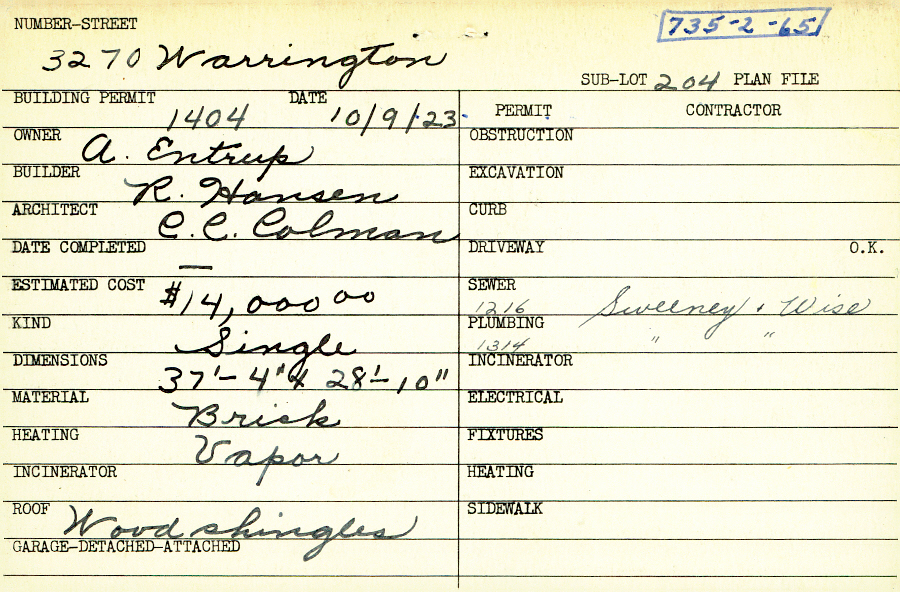 NUMBER-STREET
735-2-65
3270 Warrington
SUB-LOT 204 PLAN FILE
BUILDING PERMIT 1404 DATE 10/9/23.
PERMIT CONTRACTOR
OWNER A. Entrup
OBSTRUCTION
BUILDER R. Hansen
EXCAVATION
ARCHITECT C.C. Colman
CURB
DATE COMPLETED —
DRIVEWAY O.K.
ESTIMATED COST $14,000 00
SEWER 1216 Sweeney & Wise
KIND Single
PLUMBING 1314 " "
DIMENSIONS 37'-4" x 28'-10"
INCINERATOR
MATERIAL Brick
ELECTRICAL
HEATING Vapor
FIXTURES
INCINERATOR
HEATING
ROOF Wood shingles
SIDEWALK
GARAGE-DETACHED-ATTACHED